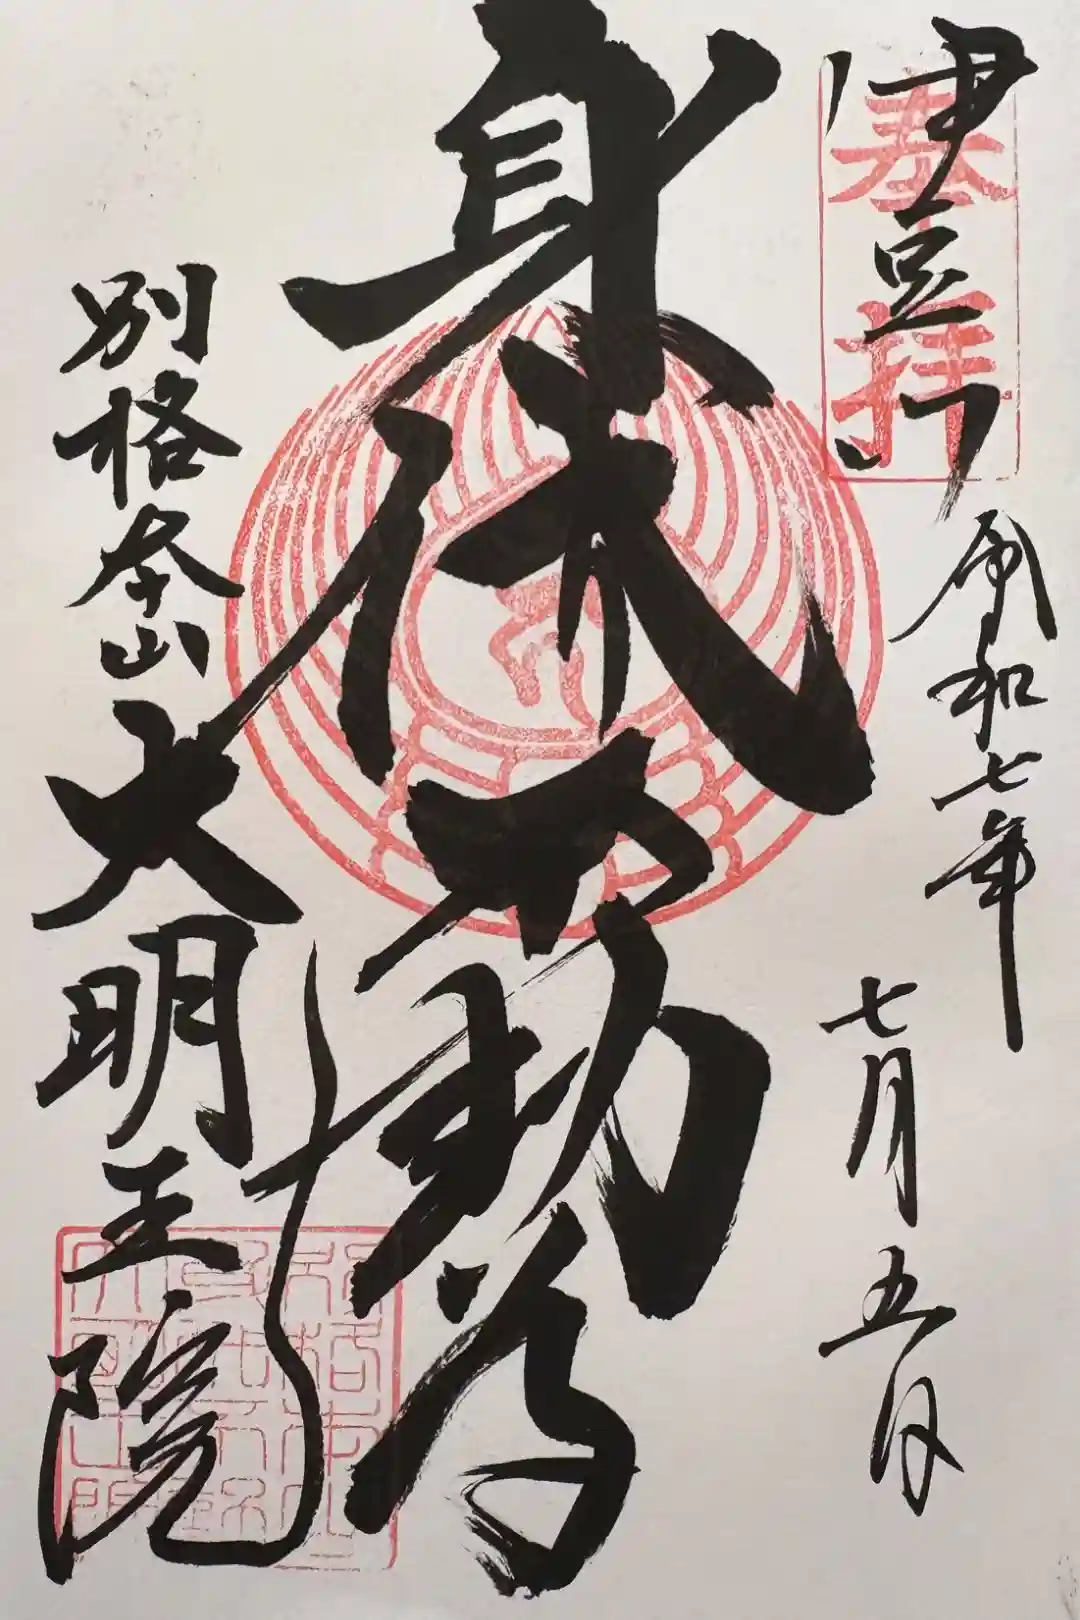 奉拝
伊豆
令和七年
七月五日
身代不動尊
別格本山
大明王院